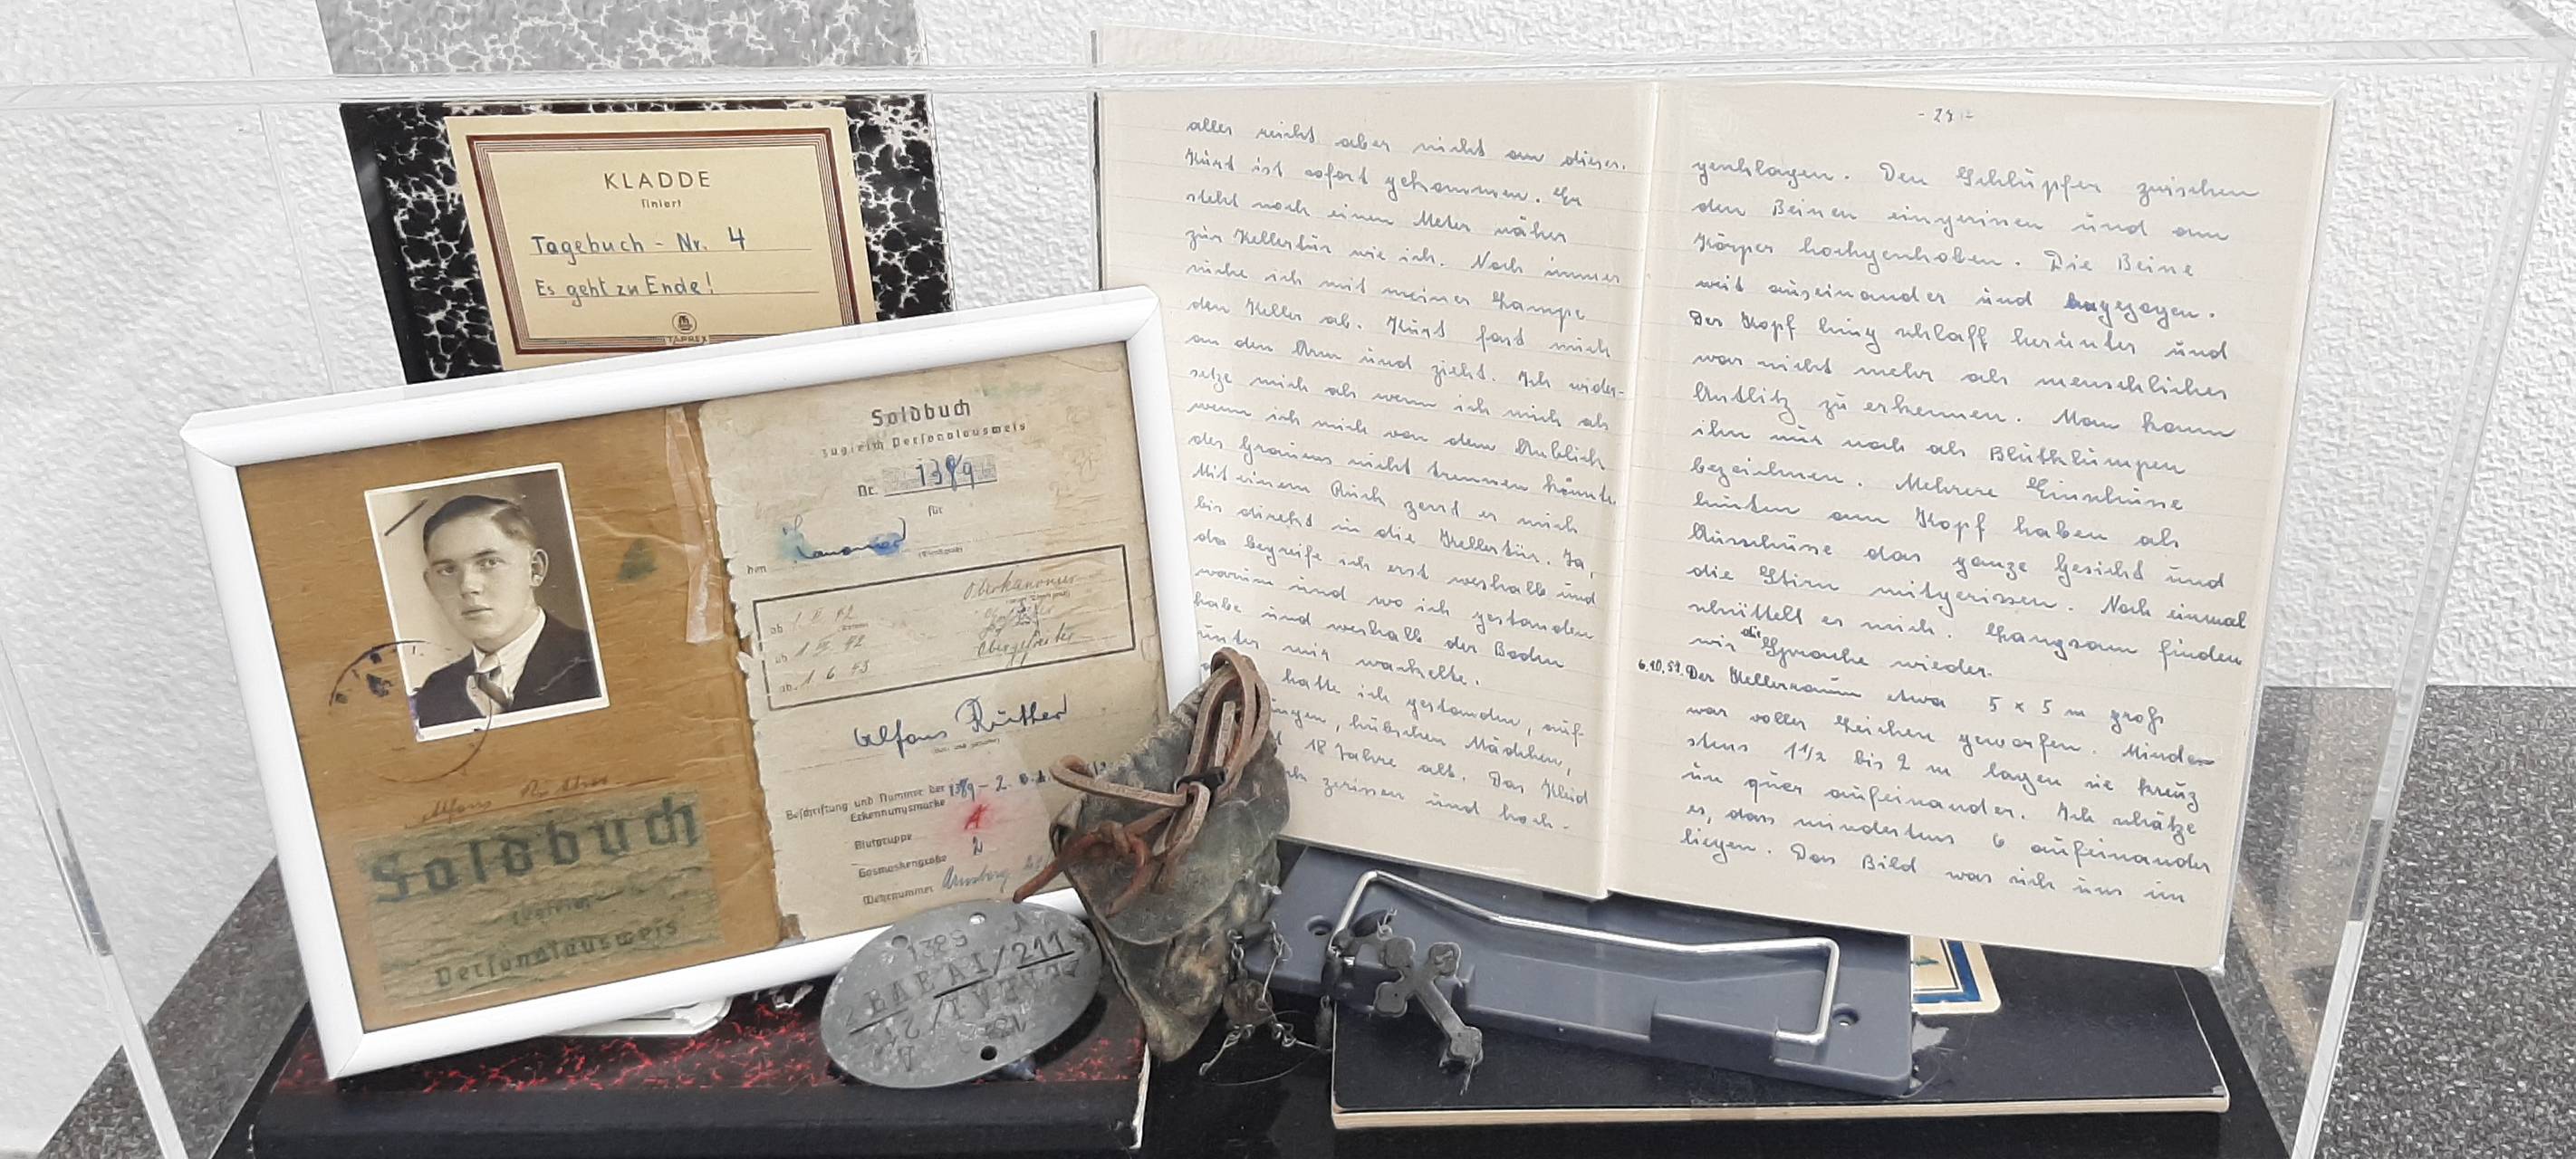 KLADDE
liniert
Tagebuch - Nr. 4
Es geht zu Ende!
TAPREX
Soldbuch
zugleich Personalausweis
Nr. 1389
für
den Kanonier
(Dienstgrad)
ab 1. II. 42 Oberkanonier
ab 1. II. 42
ab 1. 6. 43 Obergefreiter
Alfons Rüther
Beschriftung und Nummer der
Erkennungsmarke 1389 - 2.
Blutgruppe A
Gasmaskengröße 2
Wehrnummer Arnsberg
Alfons Rüther
Soldbuch
zugleich
Personalausweis
1389 A
211
alles reicht aber nicht an dieses.
Kurt ist sofort gekommen. Er
steht noch einen Meter näher
zur Kellertür wie ich. Noch immer
suche ich mit meiner Lampe
den Keller ab. Kurt fast mich
an den Arm und zieht. Ich wider-
setze mich als wenn ich mich als
wenn ich mich von dem Anblick
des Grauens nicht trennen könnte.
Mit einem Ruck zerrt er mich
bis direkt in die Kellertür. Ja,
da begreife ich erst weshalb und
warum und wo ich gestanden
habe und weshalb der Boden
unter mir wackelte.
hatte ich gestanden, auf
jungen, hübschen Mädchen,
18 Jahre alt. Das Kleid
zerissen und hoch-
geschlagen. Den Schlüpfer zwischen
den Beinen eingerissen und am
Körper hochgeschoben. Die Beine
weit auseinander und angezogen.
Der Kopf hing schlaff herunter und
war nicht mehr als menschliches
Antlitz zu erkennen. Man kann
ihn nur noch als Blutklumpen
bezeichnen. Mehrere Einschüsse
hinten am Kopf haben als
Ausschüsse das ganze Gesicht und
die Stirn mitgerissen. Noch einmal
schüttelt es mich. Langsam finden
wir die Sprache wieder.
6.10.51. Der Kellerraum etwa 5 x 5 m groß
war voller Leichen geworfen. Minde-
stens 1 1/2 bis 2 m lagen sie kreuz
un quer aufeinander. Ich schätze
es, dass mindestens 6 aufeinander
liegen. Das Bild was sich uns im